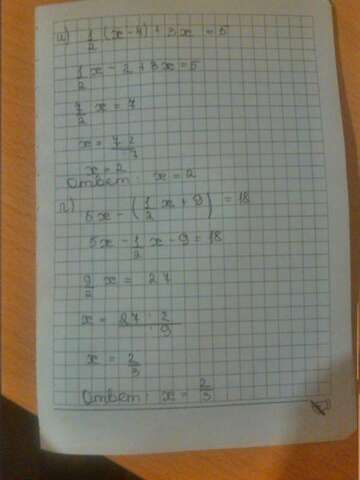 в) 1/2 (x - 4) + 3x = 5
1/2 x - 2 + 3x = 5
7/2 x = 7
x = 7 · 2/7
x = 2
Ответ: x = 2
г) 5x - (1/2 x + 9) = 18
5x - 1/2 x - 9 = 18
9/2 x = 27
x = 27 · 2/9
x = 2/3
Ответ: x = 2/3